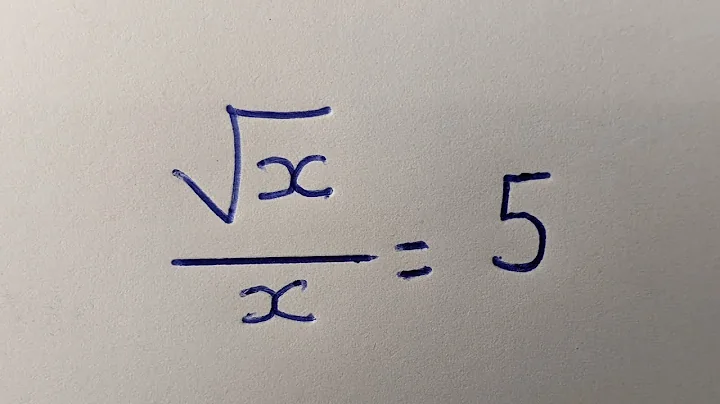 √x
x = 5